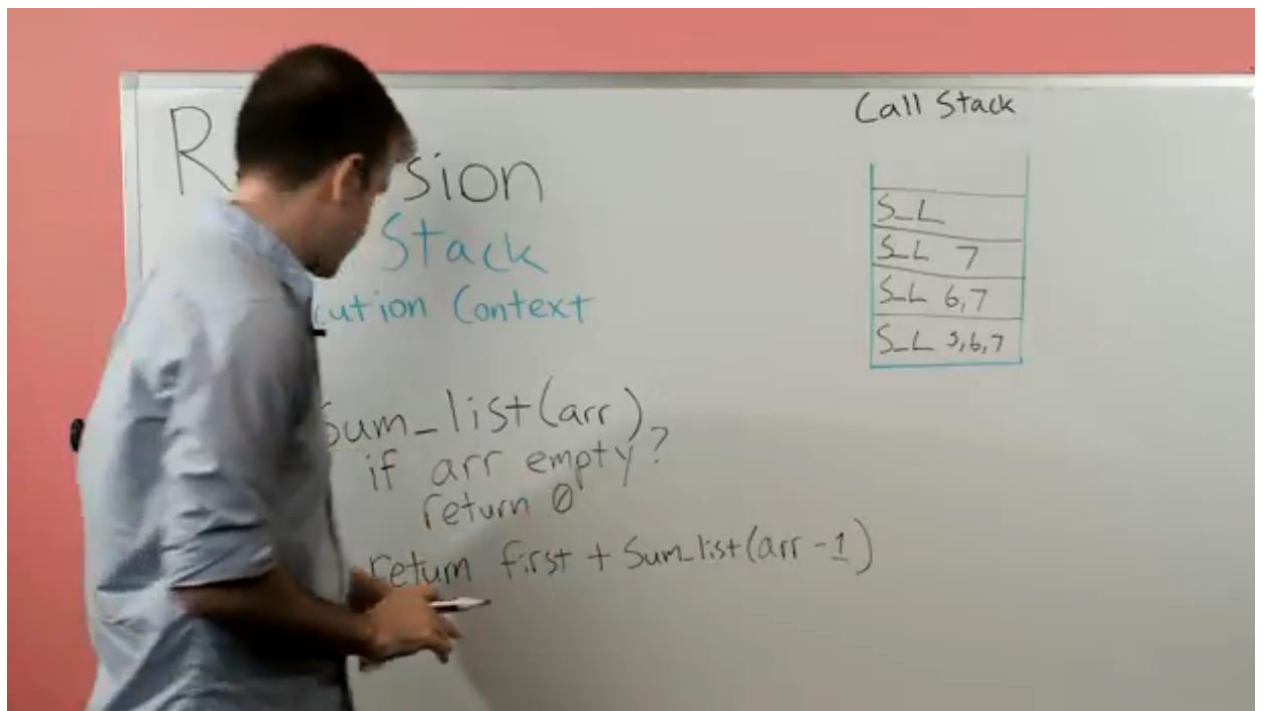 R sion
Stack
cution Context
Sum_list(arr)
if arr empty?
return 0
return first + Sum_list(arr - 1)
Call Stack
S_L
S_L 7
S_L 6,7
S_L 5,6,7